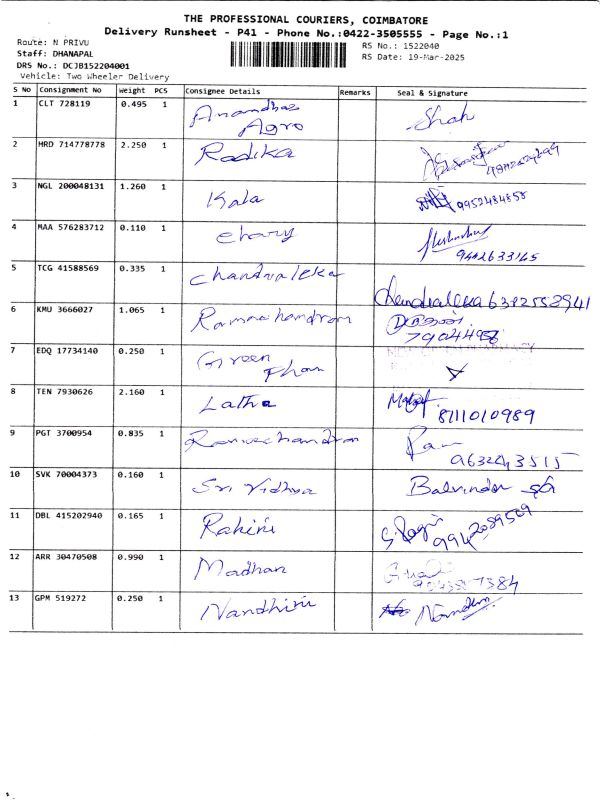 THE PROFESSIONAL COURIERS, COIMBATORE
Delivery Runsheet - P41 - Phone No.:0422-3505555 - Page No.:1
Route: N PRIVU
Staff: DHANAPAL
DRS No.: DCJB152204001
Vehicle: Two Wheeler Delivery
RS No.: 1522040
RS Date: 19-Mar-2025
S No Consignment No Weight PCS Consignee Details Remarks Seal & Signature
1 CLT 728119 0.495 1 Anandhas Agro Shah
2 HRD 714778778 2.250 1 Radika
3 NGL 200048131 1.260 1 Kala 9952484858
4 MAA 576283712 0.110 1 9442633165
5 TCG 41588569 0.335 1 Chandraleka Chandraleka 6382552941
6 KMU 3666027 1.065 1 Ramachandram
7 EDQ 17734140 0.250 1 Green
8 TEN 7930626 2.160 1 Latha 8111010989
9 PGT 3700954 0.835 1 Ramachandran 9632243515
10 SVK 70004373 0.160 1 Sri Vidhya Balvinder
11 DBL 415202940 0.165 1 Rahini 9942089509
12 ARR 30470508 0.990 1 Madhan
13 GPM 519272 0.250 1 Nandhini